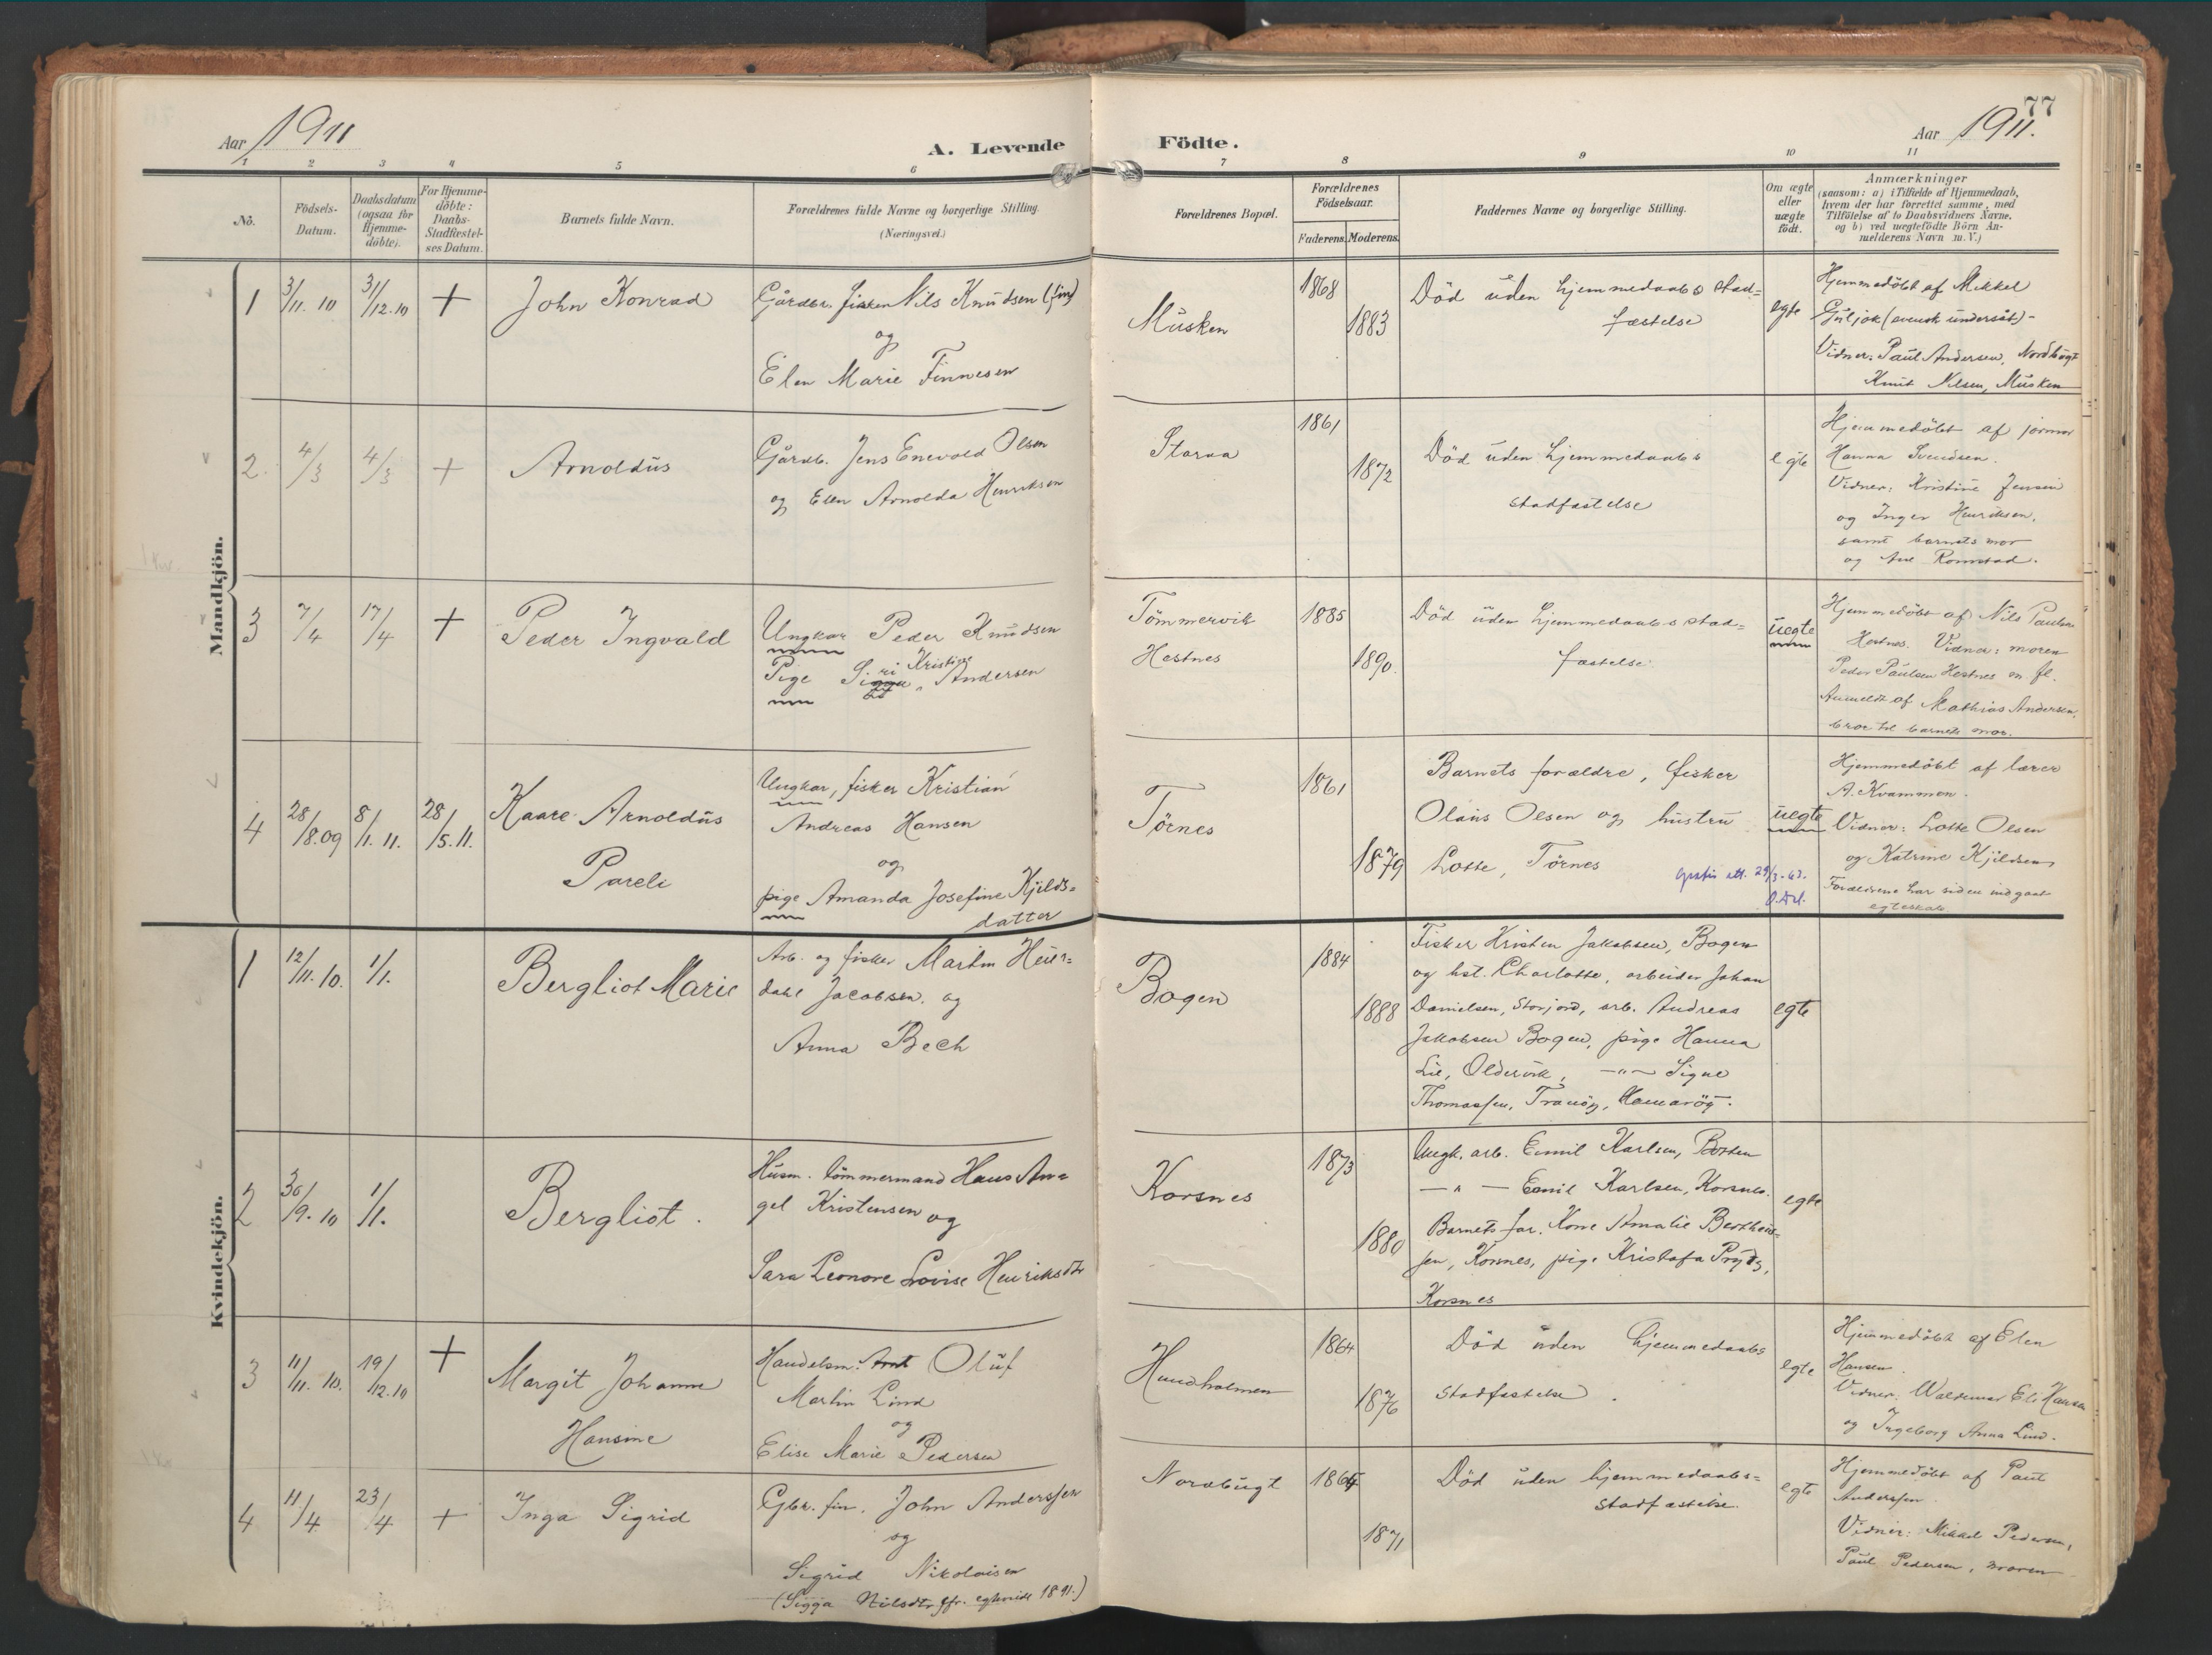 77
Aar 1911
A. Levende
Födte.
Aar 1911.
1 2 3 4 5 6 7 8 9 10 11
Nō.
Födsels-
Datum.
Daabsdatum
(ogsaa for
Hjemme-
döbte).
For Hjemme-
döbte:
Daabs-
Stadfæstel-
ses Datum.
Barnets fulde Navn.
Forældrenes fulde Navne og borgerlige Stilling.
(Næringsvei.)
Forældrenes Bopæl.
Forældrenes
Födselsaar.
Faderens. Moderens.
Faddernes Navne og borgerlige Stilling.
Om ægte
eller
uægte
födt.
Anmærkninger
(saasom: a) i Tilfælde af Hjemmedaab,
hvem der har forrettet samme, med
Tilföielse af to Daabsvidners Navne.
og b) ved uægtefödte Börn An-
melderens Navn m. V.)
Mandkjön.
1
3/11. 10
31/12.10
+
John Konrad
Gårdbr. fisker Nils Knudsen (fin)
og
Elen Marie Finnesen
Musken
1868
1883
Död uden hjemmedaabs stad=
fæstelse
egte
Hjemmedöbt af Mikkel
Guljok (svensk undersåt) -
Vidner: Paul Andersen, Nordbugt
Knut Nilsen, Musken
2
4/3
4/3
+
Arnoldus
Gårdb. Jens Enevold Olsen
og Elen Arnolda Henriksen
Storaa
1861
1872
Död uden hjemmedaabs
stadfæstelse
egte
Hjemmedöbt af jormor
Hanna Svendsen.
Vidner: Kristine Jensen
og Inger Henriksen,
samt barnets mor
og Ane Romstad.
3
7/4
17/4
+
Peder Ingvald
Ungkar Peder Knudsen
Pige Siri Kristine Andersen
Tömmervik
Hestnes
1885
1890.
Död uden hjemmedaabs stad=
fæstelse.
uegte
Hjemmedöbt af Nils Paulsen
Hestnes. Vidner: moren
Peder Paulsen Hestnes m. fl.
Anmeldt af Mathias Andersen,
bror til barnets mor.
4
28/8.09
8/1. 11.
28/5. 11.
Kaare Arnoldus
Pareli
Ungkar, fisker Kristian
Andreas Hansen
og
pige Amanda Josefine Kjelds=
datter
Törnes
1861
1879
Barnets forældre, fisker
Olaus Olsen og hustru
Lotte, Törnes
gratis att. 29/3-63.
uegte
Hjemmedöbt af lærer
A. Kvammen.
Vidner: Lotte Olsen
og Katrine Kjeldsen
Forældrene har siden indgaat
egteskab.
Kvindekjön.
1
12/11. 10.
1/1.
Bergliot Marie
Arb. og fisker Martin Heier=
dahl Jacobsen. og
Anna Bech
Bogen
1884
1888
Fisker Kristen Jakobsen, Bogen
og hst. Charlotte, arbeider Johan
Danielsen, Storjord, arb. Andreas
Jakobsen Bogen, pige Hanna
Lie, Oldervik, —"— Signe
Thomassen, Tranöy, Hamaröy.
egte
2
30/9. 10
1/1.
Bergliot.
Husm. tömmermand Hans An=
gel Kristensen og
Sara Leonore Lovise Henriksdtr
Korsnes
1873
1880
Ungk. arb. Emil Karlsen, Botten
— " — Emil Karlsen, Korsnes.
Barnets far. Kone Amalie Bertheus=
sen, Korsnes, pige Kristofa Pryds,
Korsnes
egte
3
11/11. 10.
19/12.10
+
Margit Johanne
Hansine
Handelsm. Arnt Oluf
Martin Lind
og
Elise Marie Pedersen
Hundholmen
1864
1876
Död uden hjemmedaabs
stadfæstelse.
egte
Hjemmedöbt af Elen
Hansen.
Vidner: Waldemar Eli Hansen
og Ingeborg Anna Lind.
4
11/4
23/4
+
Inga Sigrid
Gbr. fin. John Anderssen
og
Sigrid Nikolaisen
(Sigga Nilsdtr jfr. egteviede 1891.)
Nordbugt
1871
Död uden hjemmedaabs=
stadfæstelse.
egte
Hjemmedöbt af Paul
Anderssen.
Vidner: Mikkel Pedersen,
Paul Pedersen, moren